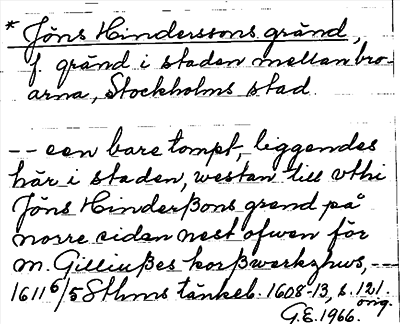 * Jöns Hinderssons gränd,
f. gränd i staden mellan bro-
arna, Stockholms stad.
-- een bare tompt, liggendes
här i staden, westan till vthi
Jöns Hinderßons grend på
norre sidan nest ofwen för
m. Gilliußes korßwerkzhws, --
1611 6/5 Sthms tänkeb. 1608-13, s. 121.
orig.
G.E. 1966.